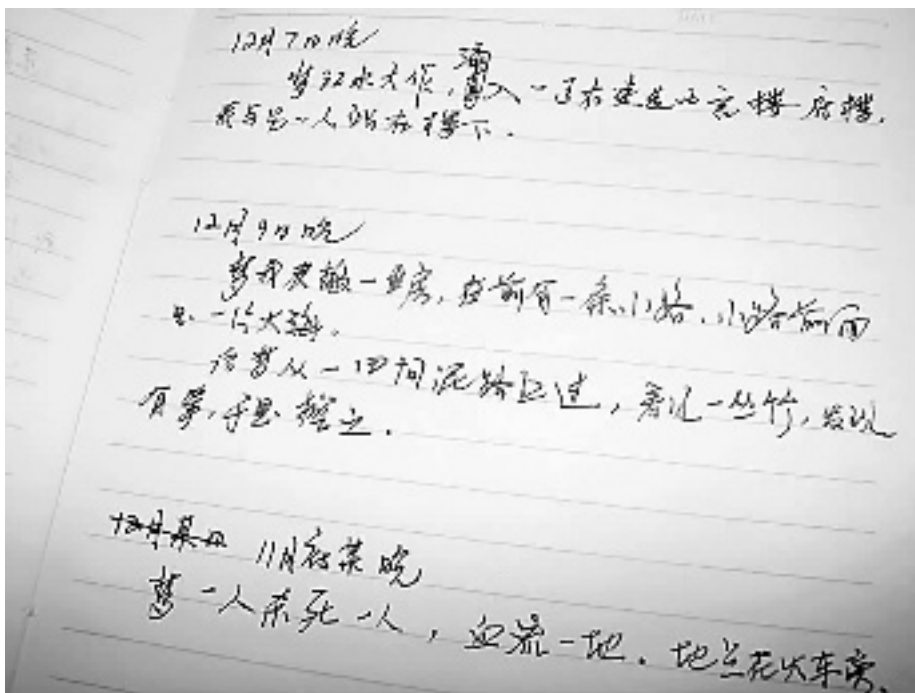 12月7日晚
梦江水大作，涌入一正在建造的高楼底楼，
我与另一人站在楼下。
12月9日晚
梦我建一房，房前有一条小路，小路前面
是一片大海。
后梦从一田间泥路经过，穿过一丛竹，发现
有笋，于是挖之。
12月某日 11月初某晚
梦一人杀死一人，血流一地。地点在火车旁。